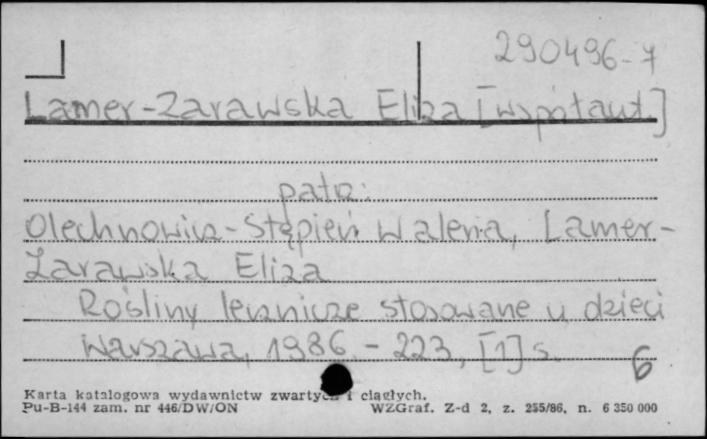 290496-7
Lamer-Zarawska Eliza [współaut]
patrz:
Olechnowicz-Stępień Waleria, Lamer-
Zarawska Eliza
Rośliny lecznicze stosowane u dzieci
Warszawa, 1986. - 223, [1] s.
6
Karta katalogowa wydawnictw zwartych i ciągłych.
Pu-B-144 zam. nr 446/DW/ON WZGraf. Z-d 2, z. 255/86, n. 6 350 000